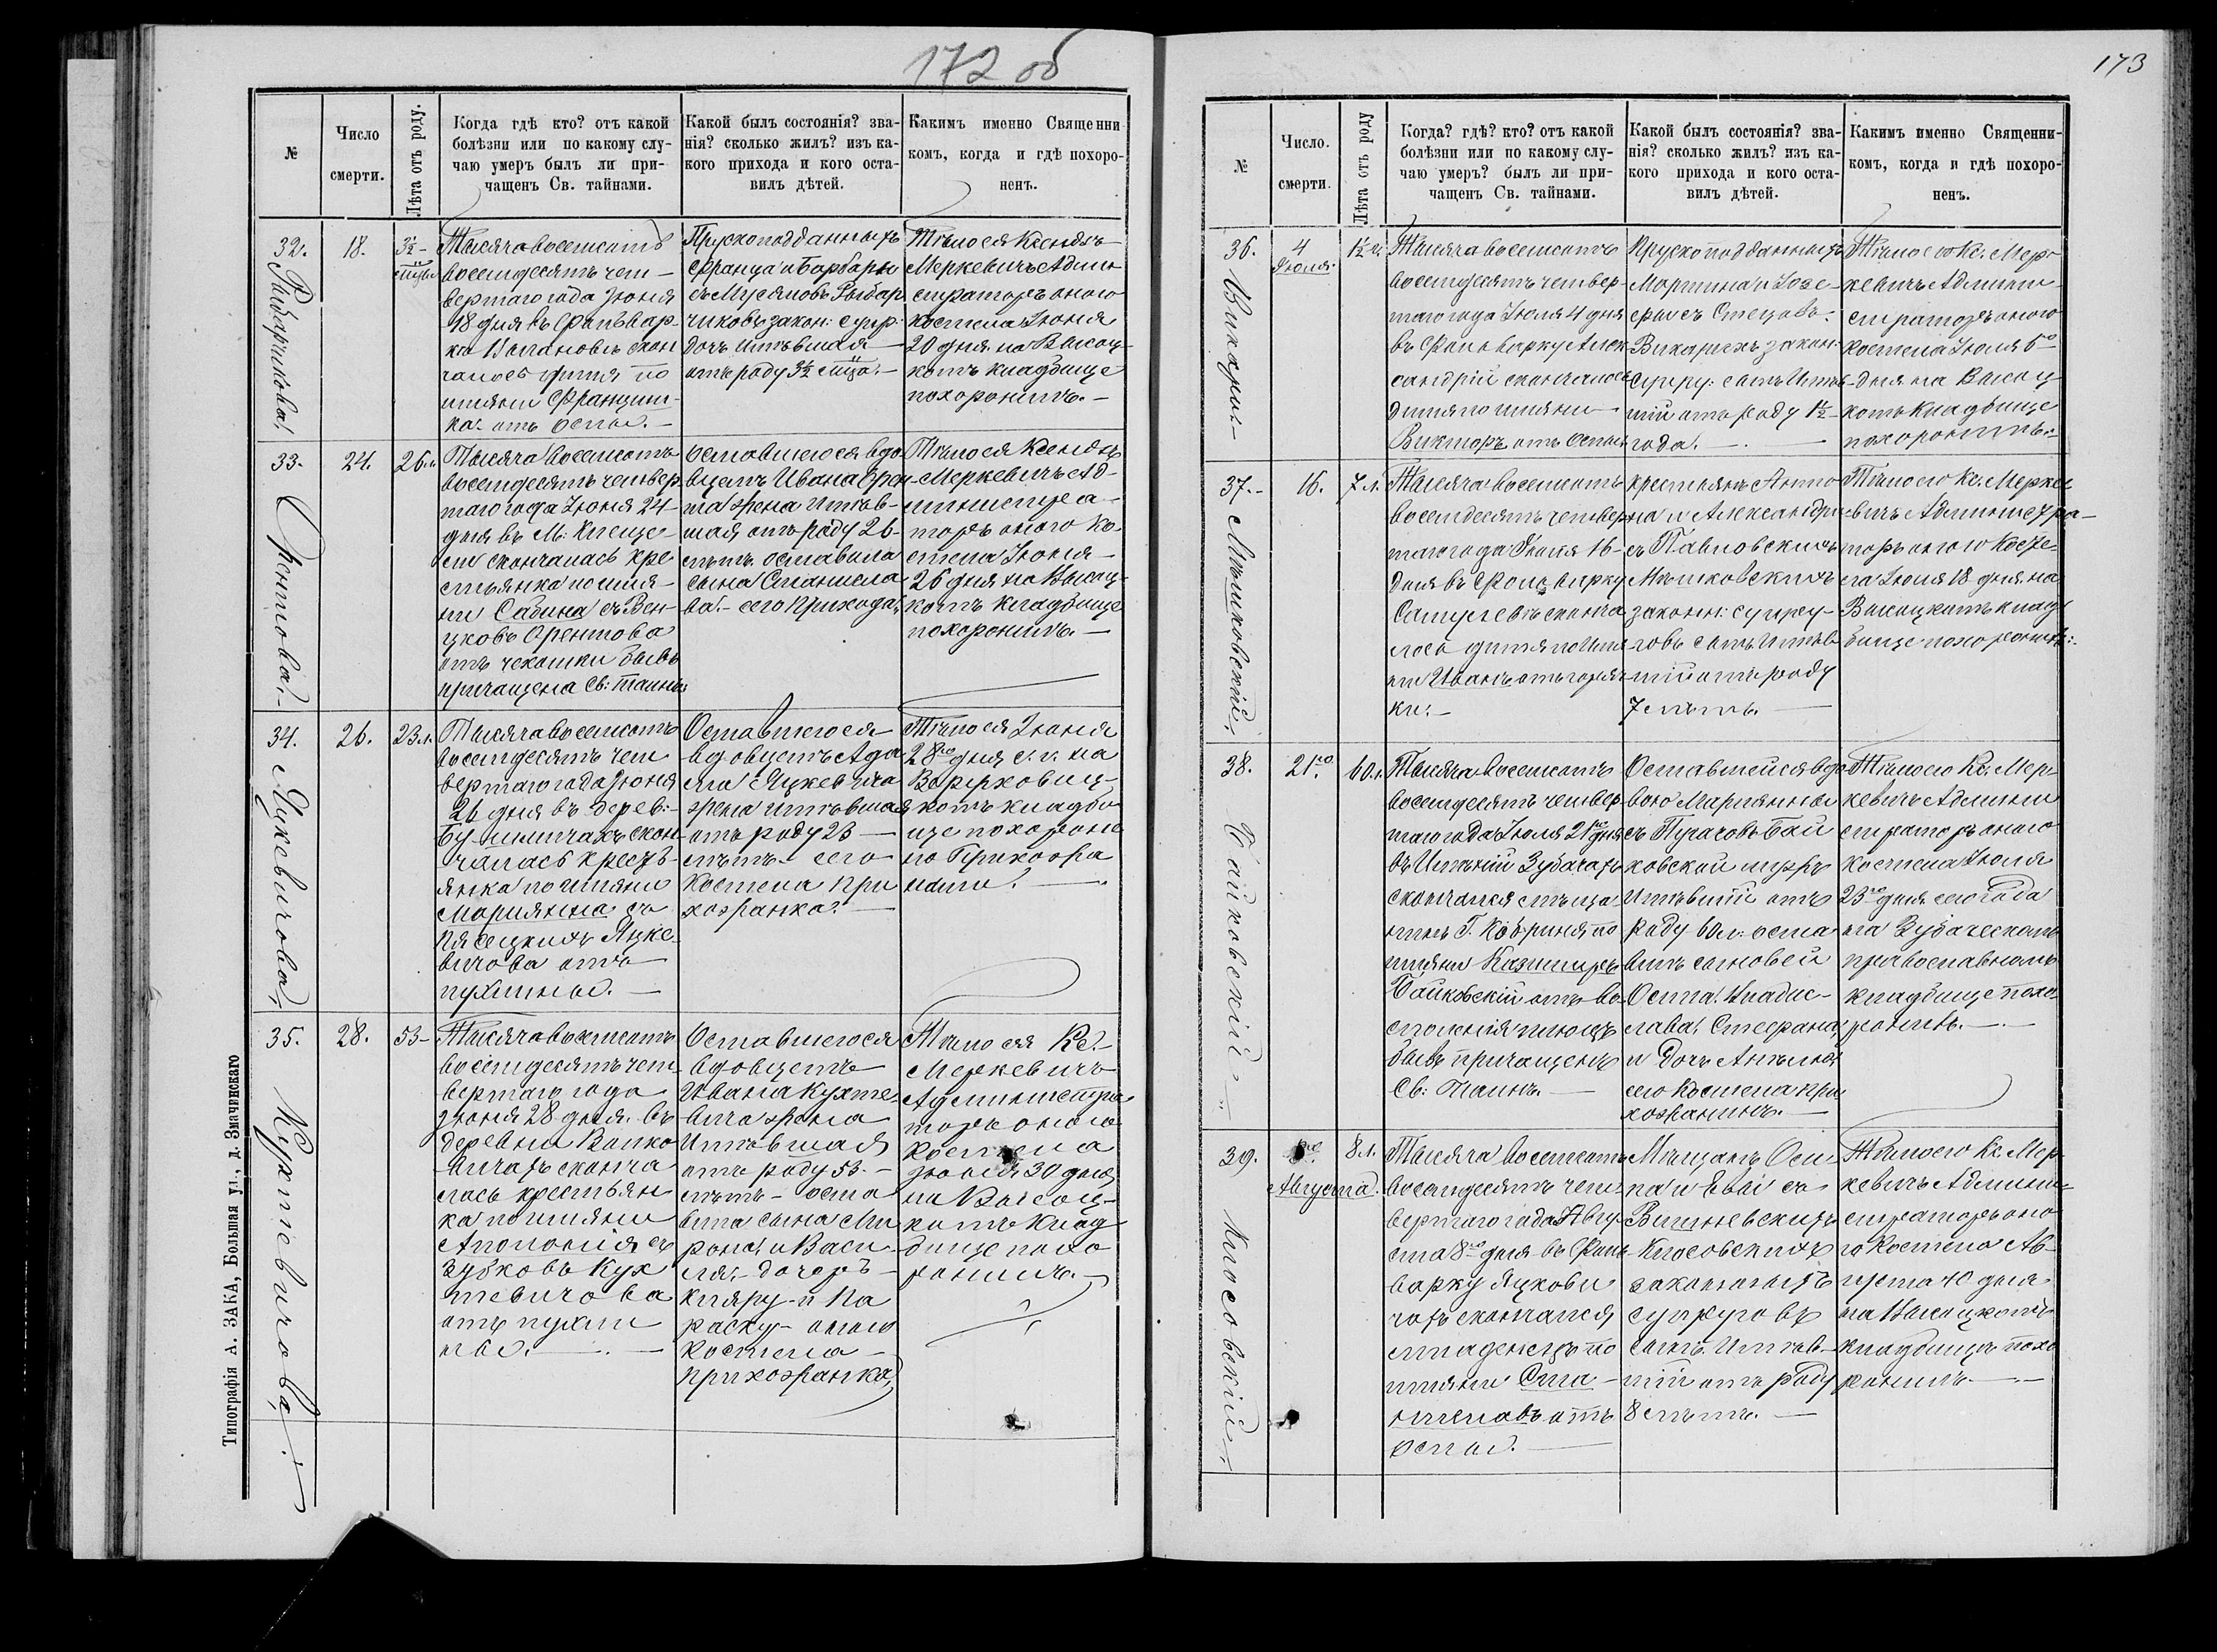 172 об
№
Число
смерти.
Лѣта отъ роду.
Когда гдѣ кто? отъ какой
болѣзни или по какому слу-
чаю умеръ былъ ли при-
чащенъ Св. тайнами.
Какой былъ состоянія? зва-
нія? сколько жилъ? изъ ка-
кого прихода и кого оста-
вилъ дѣтей.
Какимъ именно Священни
комъ, когда и гдѣ похоро-
ненъ.
32.
Рыбарчикова
18.
3½ -
Тысяча восемсотъ
восемдесятъ чет-
вертаго года Іюня
18 дня въ Фольвар-
кѣ скон
чалось дитя по
имяни Франциш-
ка. отъ оспы. -
Прускоподданныхъ
Франца и Барбары
Рыбар
чиковъ закон: супр.
дочь имѣвшая
отъ роду 3½ мца. -
Тѣло ея Ксендзъ
Меркевичъ Админи
страторъ оного
костела Іюня
20 дня на Высоц-
комъ кладбище
похоронилъ. -
33.
Орентова. -
24.
26 л
Тысяча восемсотъ
восемдесятъ четвер
таго года Іюня 24
дня въ М:
скончалась кре
стьянка по имя-
ни Сабина съ
Орентова
отъ чекотки бывъ
причащена Св: таинъ
Оставшегося вдо
вцемъ Ивана Орен
та жена имѣв-
шая отъ роду 26
лѣтъ. оставила
сына Станисла
ва. - сего прихода.
Тѣло ея Ксендзъ
Меркевичъ Ад-
министра-
торъ оного Ко
стела Іюня
26 дня на Высоц
комъ кладбище
похоронилъ. -
34.
Яцкевичова,
26.
23 л.
Тысяча восемсотъ
восемдесятъ чет
вертаго года Іюня
26 дня въ дерев:
скон
чалась кресть-
янка по имяни
Марiянна съ
Пясецкихъ Яцке-
вичова отъ
пухлины. -
Оставшегося
вдовцемъ Ада
ма Яцкевича
жена имѣвшая
отъ роду 23
лѣтъ - сего
костела при
хожанка. -
Тѣло ея Іюня
28го дня с. г. на
комъ кладби
ще похороне
но
35.
Кухтевичова,
28.
53 -
Тысяча восемсотъ
восемдесятъ чет
вертаго года
Іюня 28 дня. въ
деревни Волко
вичахъ сконча
лась крестьян
ка по имяни
Аполонія съ
Зубковъ Кух
тевичова
отъ пухли
ны. -
Оставшегося
вдовцемъ
Ивана Кухте
вича жена
имѣвшая
отъ роду 53. -
лѣтъ - оста
вила сына Ми
рона и Васи
ля, - дочерь
Кляру - и Па
раску - оного
Костела -
прихожанка,
Тѣло ея Кс. -
Меркевичъ
Администра-
торъ оного
костела
Іюня 30 дня
на Высоц-
комъ клад
бище похо
ронилъ. -
Типографія А. ЗАКА, Большая ул., д. Змачинскаго
173
№
Число.
смерти.
Лѣта отъ роду
Когда? гдѣ? кто? отъ какой
болѣзни или по какому слу-
чаю умеръ? былъ ли при-
чащенъ Св. тайнами.
Какой былъ состоянія? зва-
нія? сколько жилъ? изъ ка-
кого прихода и кого оста-
вилъ дѣтей.
Какимъ именно Священни-
комъ, когда и гдѣ похоро-
ненъ.
36.
Викарш. -
4
Іюля.
1½ г.
Тысяча восемсотъ
восемдесятъ четвер-
таго года Іюля 4 дня
въ Фольварку Алек-
сандріи скончалось
дитя по имяни
Викторъ отъ оспы
Прускоподданныхъ
Мартина и Іозе-
фы съ
закон:
супру: сынъ имѣв-
шій отъ роду 1½
года. -
Тѣло его Кс. Мер-
кевичъ Админи-
страторъ оного
костела Іюля 6го
дня на Высоц
комъ кладбище
похоронилъ. -
37. -
Мѣшковскій,
16.
7 л.
Тысяча восемсотъ
восемдесятъ четвер
таго года Іюля 16
дня въ Фольварку
сконча
лось дитя по имя
ни Иванъ отъ горяч
ки. -
крестьянъ Анто
на и Александры
съ Павловскихъ
Мѣшковскихъ
законн: супру-
говъ сынъ имѣв
шій отъ роду
7 лѣтъ. -
Тѣло его Кс. Мерке
вичъ Администра-
торъ оного Косте-
ла Іюля 18 дня на
Высоцкомъ клад
бище похоронилъ:
38.
Байковскій
21го
60 л.
Тысяча восемсотъ
восемдесятъ четвер
таго года Іюля 21го дня
въ Имѣніи Зубачахъ
скончался мѣща
нинъ Г. Кобриня по
имяни Казимиръ
Байковскій отъ во
спаленія
бывъ причащенъ
Св: Таинъ. -
Оставшейся вдо
вою Марiянны
съ Бай
ковской мужъ
имѣвшій отъ
роду 60 л: оста
вилъ сыновей
Осипа, Владис-
лава, Стефана,
и дочь Анѣлю
сего Костела при
хожанинъ. -
Тѣло его Кс. Мер-
кевичъ Админи
страторъ оного
костела Іюля
23го дня сего года
на Зубаческомъ
православномъ
кладбище похо
ронилъ. -
39.
Клосовскій,
8го
Августа.
8 л.
Тысяча восемсотъ
восемдесятъ чет
вертаго года Авгу-
ста 8го дня въ Фоль
варку Яцкови
чахъ скончался
младенецъ по
имяни Ста-
ниславъ отъ
оспы. -
Мѣщанъ Оси
па и Евы съ
Вишневскихъ
Клосовскихъ
законныхъ
супруговъ
сынъ. имѣв-
шій отъ роду
8 лѣтъ. -
Тѣло его Кс. Мер
кевичъ Админи-
страторъ оно
го Костела Ав-
густа 10 дня
на Высоцкомъ
кладбищѣ похо
ронилъ -